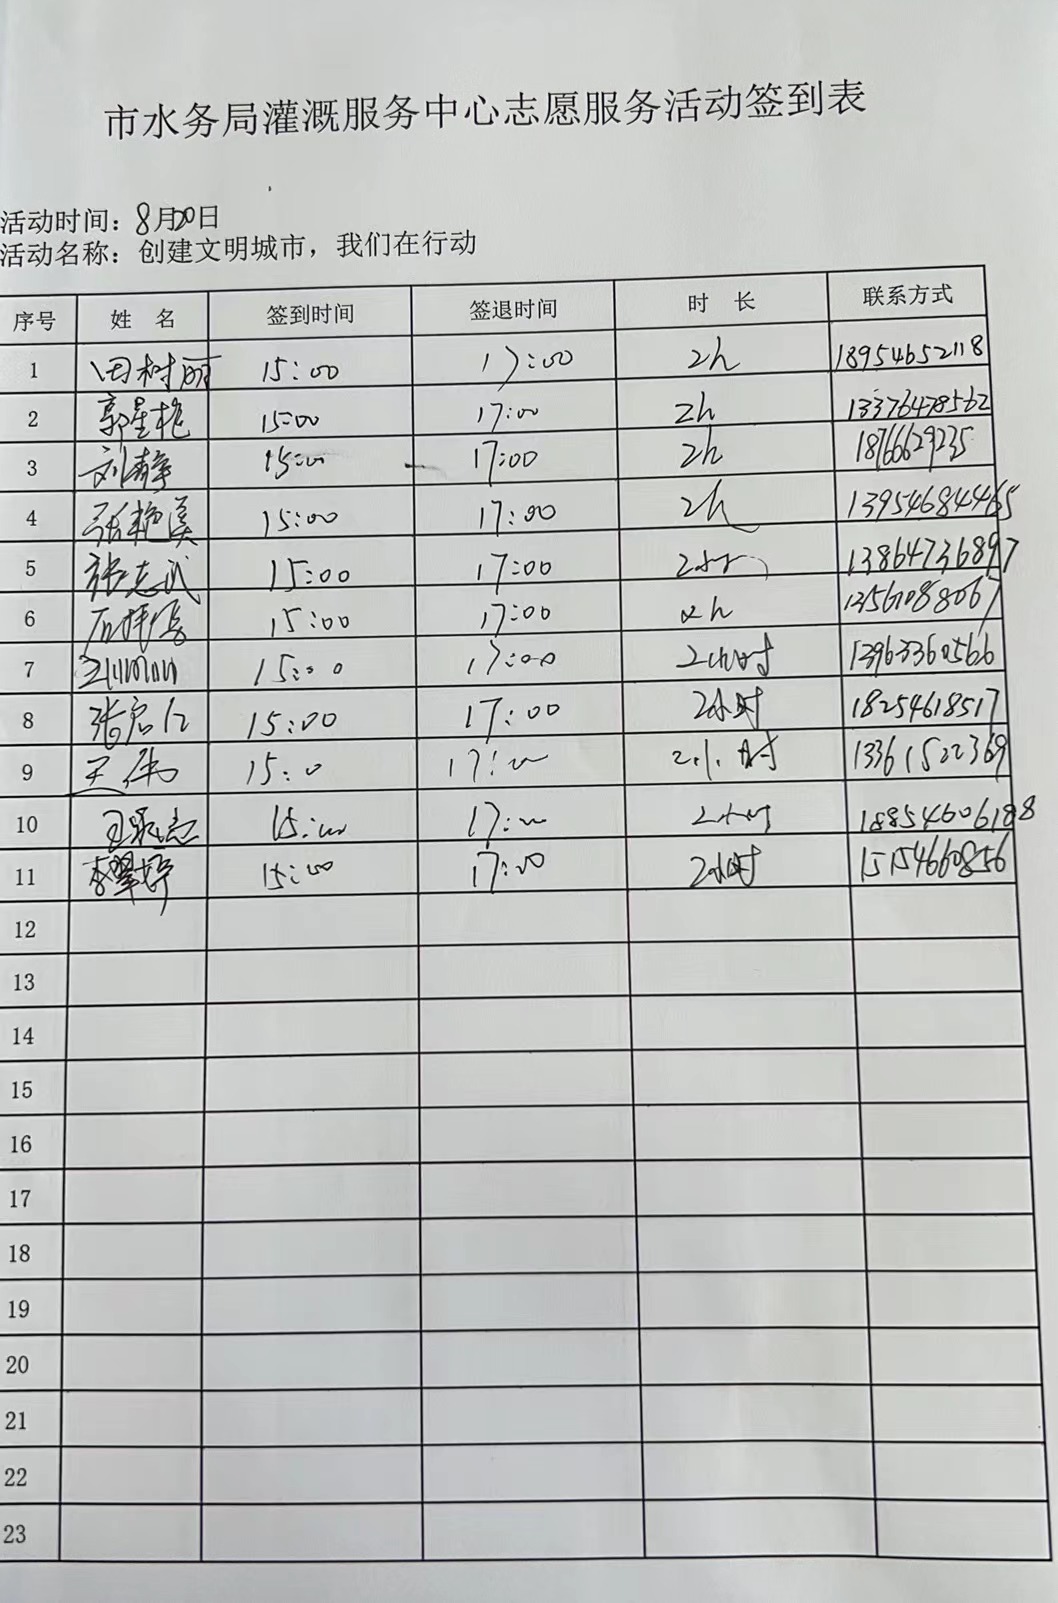 市水务局灌溉服务中心志愿服务活动签到表
活动时间：8月20日
活动名称：创建文明城市，我们在行动
序号 姓 名 签到时间 签退时间 时 长 联系方式
1 田树丽 15:00 17:00 2h 18954652118
2 郭星艳 15:00 17:00 2h 13376478562
3 刘静 15:00 17:00 2h 18766629235
4 张艳溪 15:00 17:00 2h 13954684465
5 张志武 15:00 17:00 13864736897
6 15:00 17:00 2h 13561088067
7 15:00 17:00 2小时 13963360566
8 张启仁 15:00 17:00 2小时 18254618517
9 王伟 15:0 17:00 2小时 13361522369
10 15:00 17:00 2小时 18854606188
11 李翠婷 15:00 17:00 2小时 15154660856
12
13
14
15
16
17
18
19
20
21
22
23